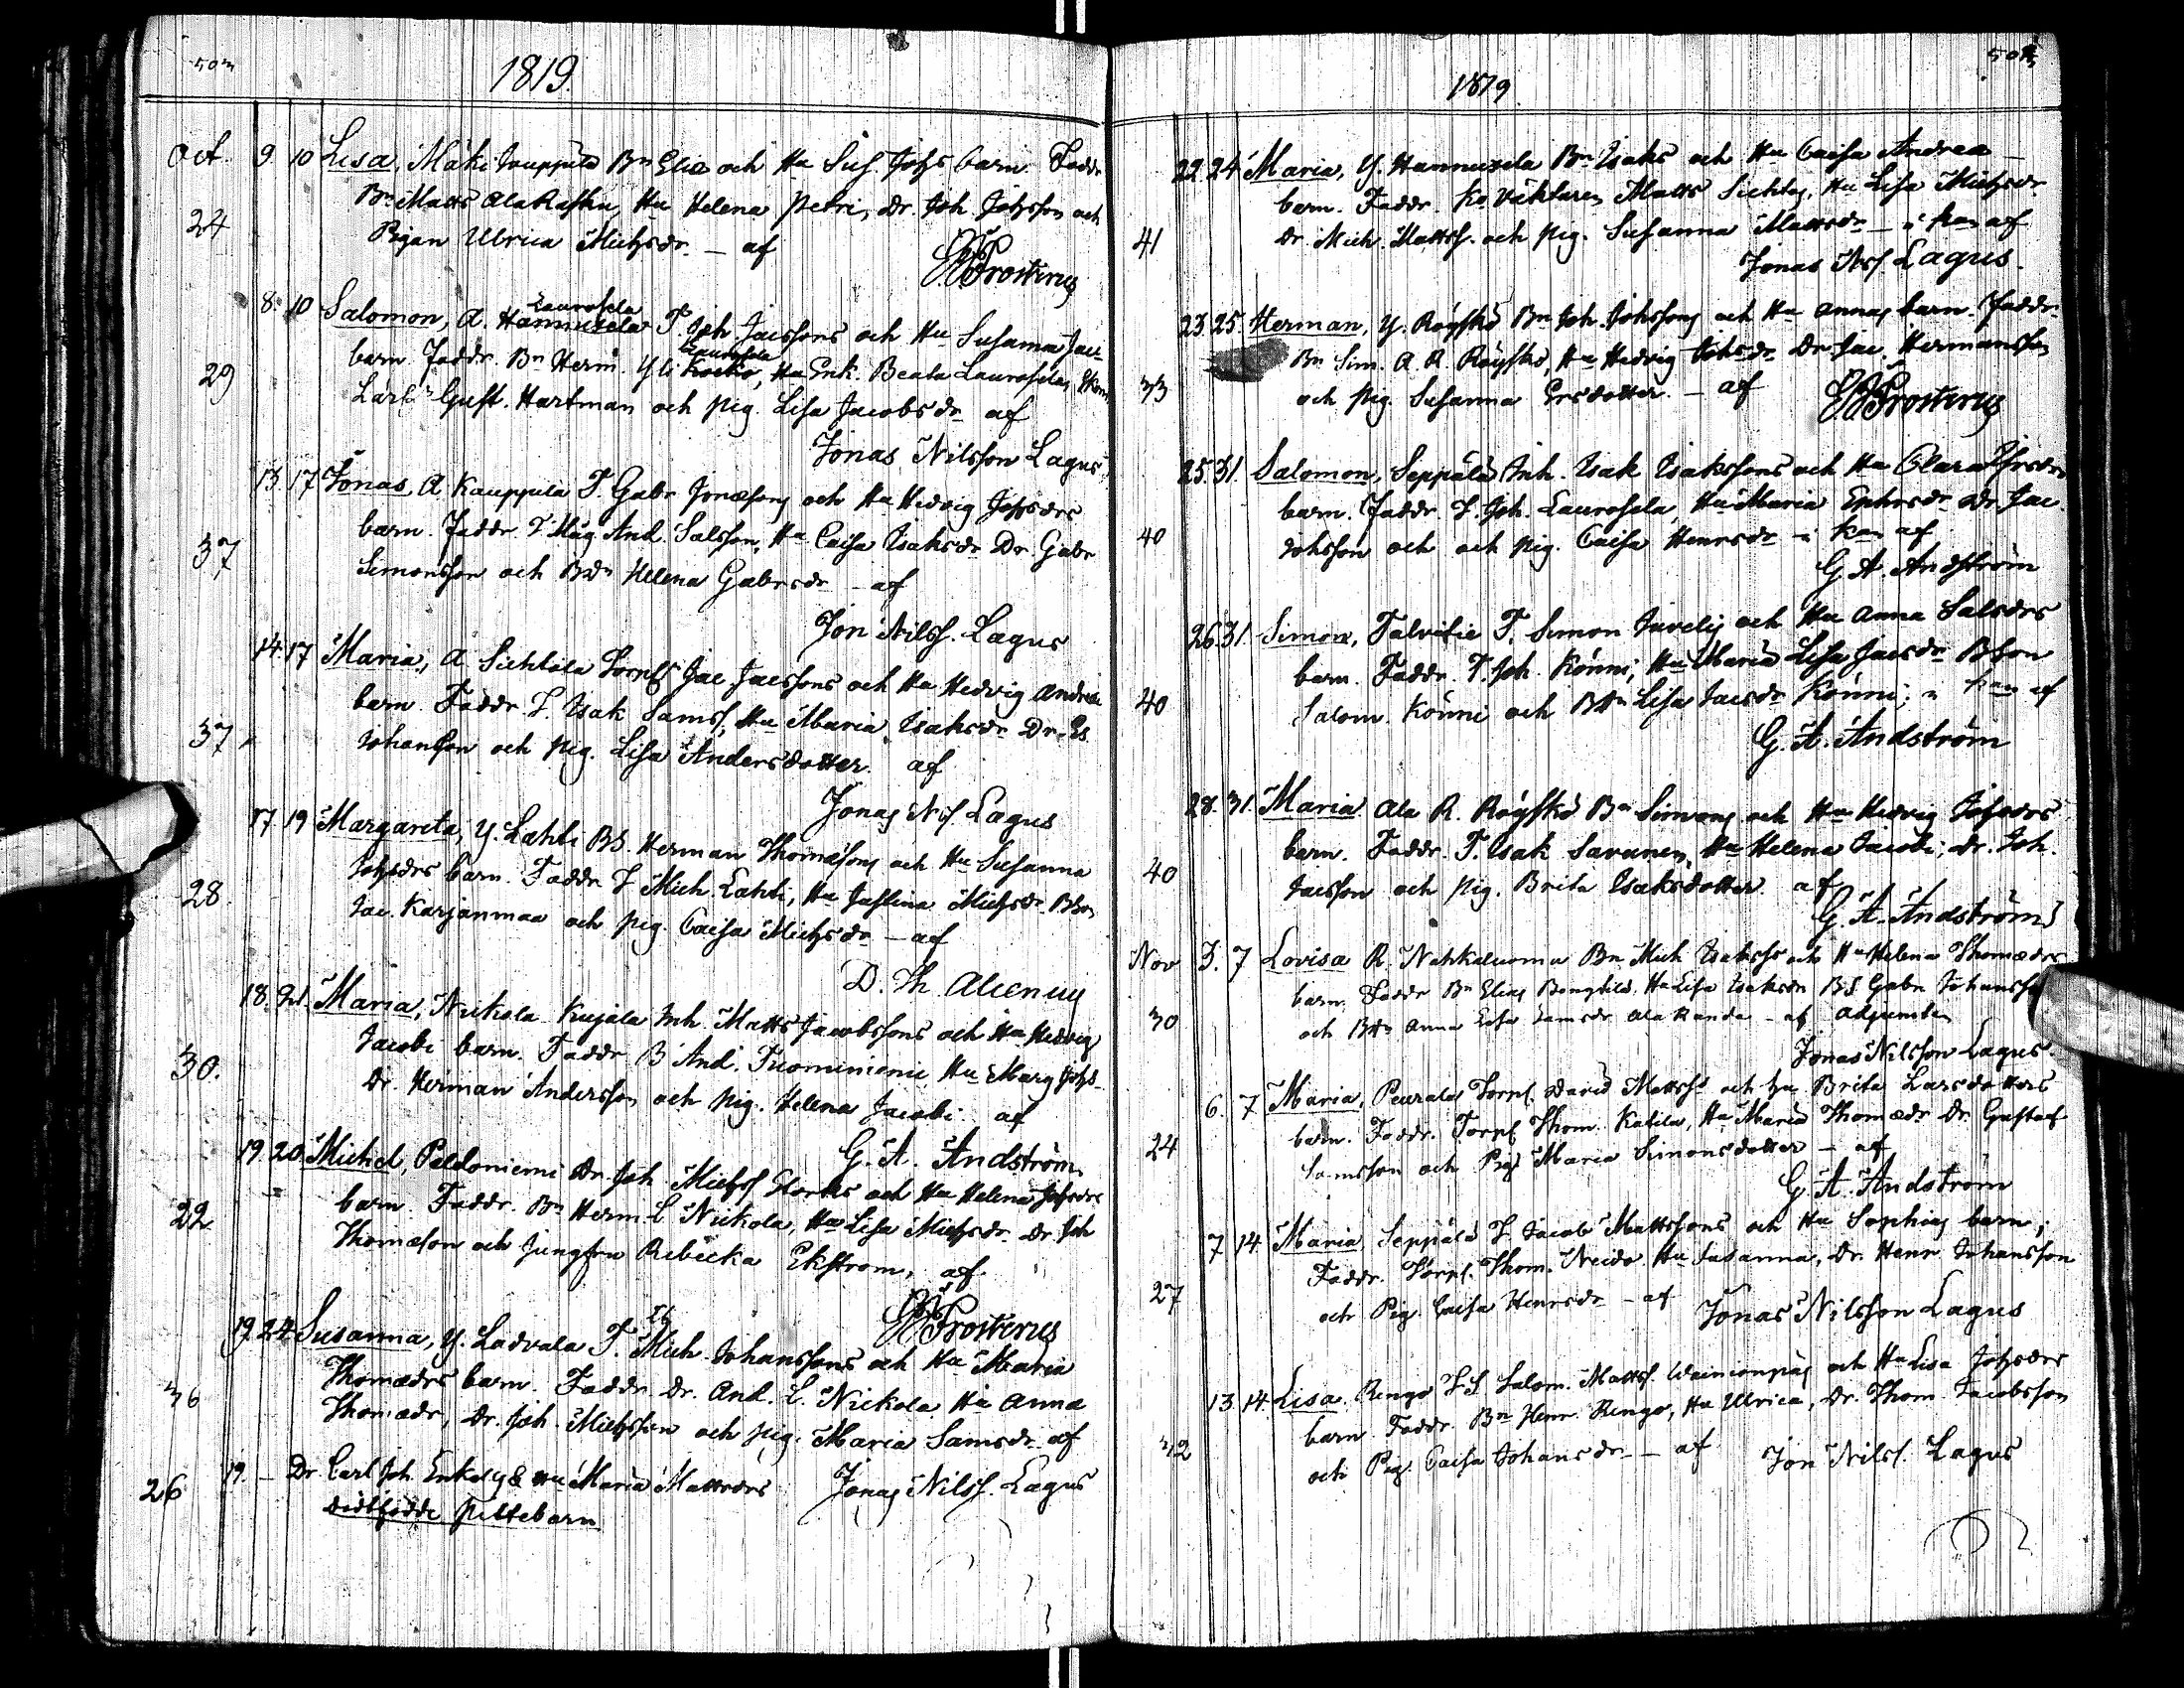 1819.
Oct. 9 10 Lisa, Mäki Jouppila Bn Eliæ och Hu Sus. Johs barn. Faddr
24 Bn Matts Ala Rasku, Hu Helena Petri, Dr. Joh. Johsson och
Pigan Ulrica Michsdr. – af
Prosterus
8. 10 Salomon, A. Hannuxela Laurosela T. Joh Jacssons och Hu Susanna Jac
29 barn. Faddr. Bn Herm. Yli Laurosela, Hu Enk. Beata Laurosela,
Gust. Hartman och pig. Lisa Jacobsdr af
Jonas Nilsson Lagus
13. 17 Jonas, A Kauppila T. Gabr Jonæsons och Hu Hedvig Johsdrs
37 barn. Faddr. And. Salsson, Hu Caisa Isaksdr Dr. Gabr
Simonsson och Bdr Helena Gabrsdr – af
Jon Nilss. Lagus
14. 17 Maria, A Sichtola Torps Jac Jacssons och Hu Hedvig Andreæ
37 barn. Faddr. T. Isak Samss, Hu Maria Isaksdr Dr. Is
Johansson och pig. Lisa Andersdotter. af
Jonas Nils Lagus
17 19 Margareta, Y. Lahti BS. Herman Thomæsons och Hu Susanna
28. Johsdrs barn. Faddr. T Mich. Lahti, Hu Justina Michsdr. Bson
Jac. Karjanmaa och pig. Caisa Michsdr – af
D. Th. Alcenius
18. 21. Maria, Nickola Kujala Inh. Matts Jacobssons och Hu Hedvig
30. Jacobi barn. Faddr B And. Tuominiemi Hu Marg Johsd
Dr. Herman Andersson och pig. Helena Jacobi. af
G. A. Andström
19. 20 Michel, Peldoniemi Dr. Joh. Michss Storhs och Hu Helena Johsdrs
22 barn. Faddr. Bn Herm. L Nickola, Hu Lisa Michsdr. Dr. Joh
Thomæson och Jungfru Rebecka Ekström, af
Prosterus
19. 24. Susanna, Y. Ladvala T. Mich. Johanssons och Hu Maria
36 Thomædrs barn. Faddr. Dr. And. L. Nickola Hu Anna
Thomædr, Dr. Joh. Michsson och pig. Maria Samsdr. af
26 19. – Dr. Carl Joh. & Hu Maria Mattsdrs Jonas Nilss. Lagus
dödfödde piltebarn
1819.
22. 24 Maria, Y. Hannuxela Bn Isaks och Hu Caisa Andreæ
barn. Faddr. Ko Väktaren Matts Sichto, Hu Lisa Michsdr
41 Dr Mich. Mattss. och pig. Susanna Mattsdr – i kan af
Jonas Nss. Lagus.
23 25. Herman, Y. Röyskö Bn Joh. Johssons och Hu Annas barn. Faddr.
33 Bn Sim. A. R. Röyskö, Hu Hedvig Johsdr Dr. Jac. Hermansson
och pig. Susanna Ersdotter. – af
Prosterus
25. 31. Salomon, Seppälä Inh. Isak Isakssons och Hu Clara
40 barn. Faddr. T. Joh. Laurosela, Hu Maria Ephrsdr Dr. Jac.
Johsson och och pig. Caisa Henrsdr – i kan af
G. A. Andström
26 31. Simon, Talvitie T. Simon Juvelis och Hu Anna Salsdrs
40 barn. Faddr. T. Joh. Könni, Hu Maria Lisa Jacsdr Bson
Salom. Könni och Bdr Lisa Jacsdr Könni, i kan af
G. A. Andström
28. 31. Maria Ala R. Röyskö Bn Simons och Hu Hedvig Johsdrs
40 barn. Faddr. T. Isak Savunen, Hu Helena Jacobi, Dr. Joh.
Jacsson och pig. Brita Isaksdotter. af
G. A. Andström
Nov 3. 7 Lovisa R. Nahkaluoma Bn Mich Isakss och Hu Helena Thomædrs
30 barn. Faddr Bn Elias Hu Lisa Isaksdr BS Gabr Johansson
och Bdr Anna Lisa Samsdr Ala Randa – af Adjuncten
Jonas Nilsson Lagus.
6. 7 Maria, Peurala Torps. David Mattss och hu Brita Larsdotters
24 barn. Faddr. Torps Thom. Katila, Hu Maria Thomædr Dr. Gustaf
Samsson och Pig Maria Simonsdotter – af
G. A. Andström
7 14 Maria Seppälä T. Jacob Mattssons och Hu Sophias barn,
27 Faddr. Torps. Thom. Neido Hu Susanna, Dr. Henr Johansson
och Pig Caisa Henrsdr – af Jonas Nilsson Lagus
13. 14. Lisa. Rengo TS Salom. Mattss. Wainionpää och Hu Lisa Johsdrs
32 barn Faddr. Bn Henr. Rengo, Hu Ulrica, Dr. Thom Jacobsson
och Pig. Caisa Johansdr – af Jon Nilss. Lagus